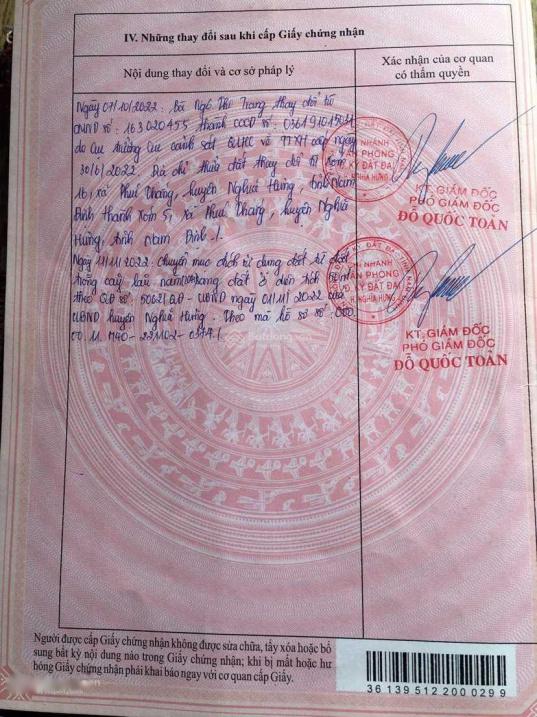 IV. Những thay đổi sau khi cấp Giấy chứng nhận
Nội dung thay đổi và cơ sở pháp lý
Xác nhận của cơ quan
có thẩm quyền
Ngày 07/10/2022: Bà Ngô Thị Trang thay đổi từ
CMND số: 163020455 thành CCCD số:
do Cục trưởng Cục cảnh sát QLHC về TTXH cấp ngày
30/6/2022. Địa chỉ thửa đất thay đổi từ xóm
16, xã Phúc Thắng, huyện Nghĩa Hưng, tỉnh Nam
Định thành Xóm 5, xã Phúc Thắng, huyện Nghĩa
Hưng, tỉnh Nam Định./.
Ngày 11/11/2022 chuyển mục đích sử dụng đất từ đất
trồng cây lâu năm sang đất ở diện tích
theo QĐ số: QĐ-UBND ngày 01/11/2022 của
UBND huyện Nghĩa Hưng. Theo mã hồ sơ số: 000.
00.11.H40-221102-
CHI NHÁNH
VĂN PHÒNG
ĐĂNG KÝ ĐẤT ĐAI
H.NGHĨA HƯNG
KT.GIÁM ĐỐC
PHÓ GIÁM ĐỐC
ĐỖ QUỐC TOẢN
CHI NHÁNH
VĂN PHÒNG
ĐĂNG KÝ ĐẤT ĐAI
H.NGHĨA HƯNG
KT.GIÁM ĐỐC
PHÓ GIÁM ĐỐC
ĐỖ QUỐC TOẢN
Batdongsan
Người được cấp Giấy chứng nhận không được sửa chữa, tẩy xóa hoặc bổ
sung bất kỳ nội dung nào trong Giấy chứng nhận; khi bị mất hoặc hư
hỏng Giấy chứng nhận phải khai báo ngay với cơ quan cấp Giấy.
36 139 512 200 0299